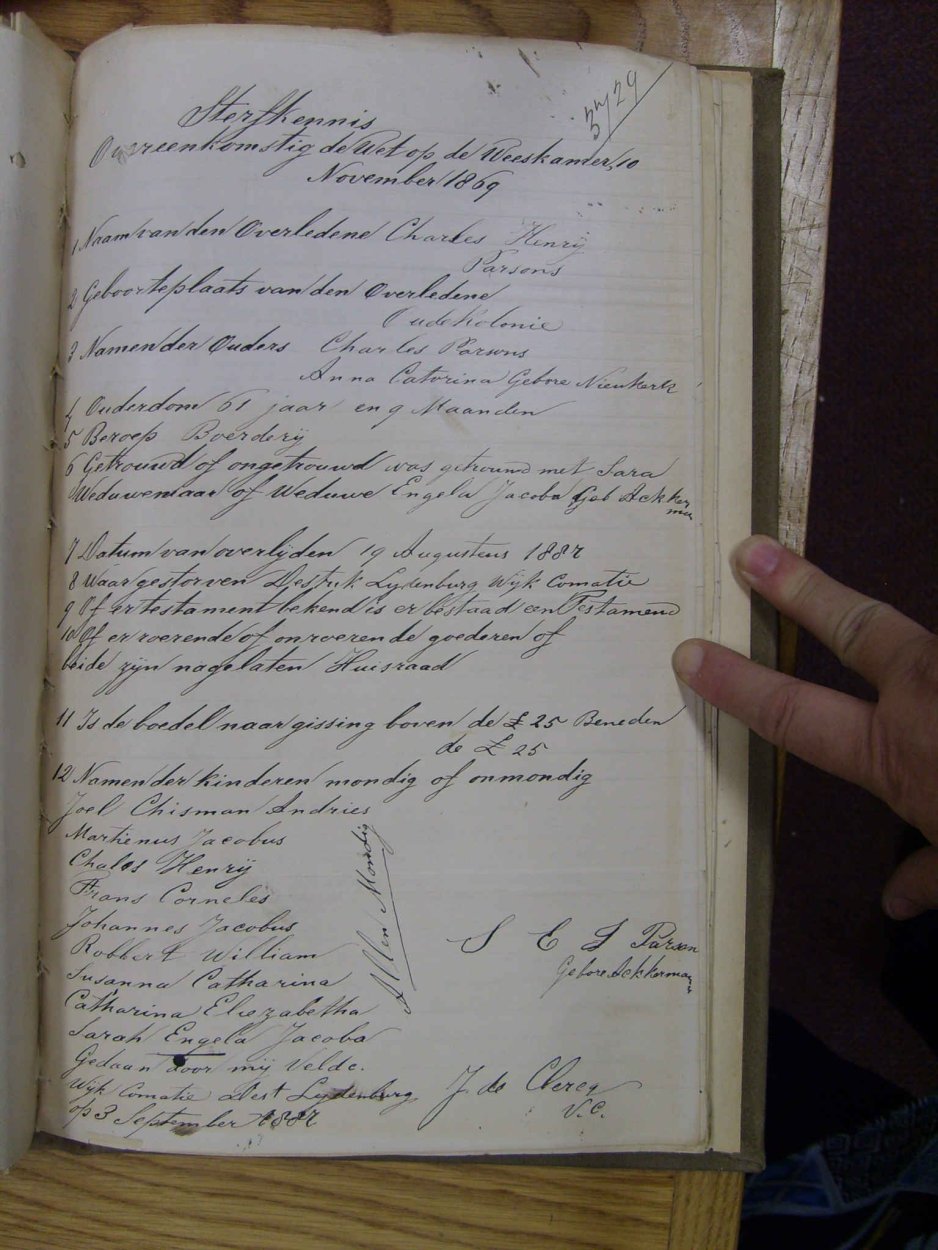 3729
Sterfkennis
Overeenkomstig de Wet op de Weeskamer, 10
November 1869
1 Naam van den Overledene Charles Henrij
Parsons
2 Geboorteplaats van den Overledene
Oude Kolonie
3 Namen der Ouders Charles Parsons
Anna Catorina Gebore Nieukerk
4 Ouderdom 61 jaar en 9 Maanden
5 Beroep Boerderij
6 Getrouwd of ongetrouwd was getrouwd met Sara
Weduwenaar of Weduwe Engela Jacoba Geb Ackker
man
7 Datum van overlijden 19 Augustus 1887
8 Waar gestorven Destrik Lydenburg Wijk Comatie
9 Of er testament bekend is er bestaad een Testamend
10 Of er roerende of onroerende goederen of
beide zijn nagelaten Huisraad
11 Is de boedel naar gissing boven de £ 25 Beneden
de £ 25
12 Namen der kinderen mondig of onmondig
Joel Chisman Andries
Martienus Jacobus
Chales Henrij
Frans Corneles
Johannes Jacobus
Robbert William
Susanna Catharina
Catharina Eliezabetha
Sarah Engela Jacoba
Allen Mondig
S E J Parson
Gebore Ackkerman
Gedaan door mij Velde.
Wijk Comatie Dest Lydenburg
op 3 September 1887
J. de Clercq
V.C.